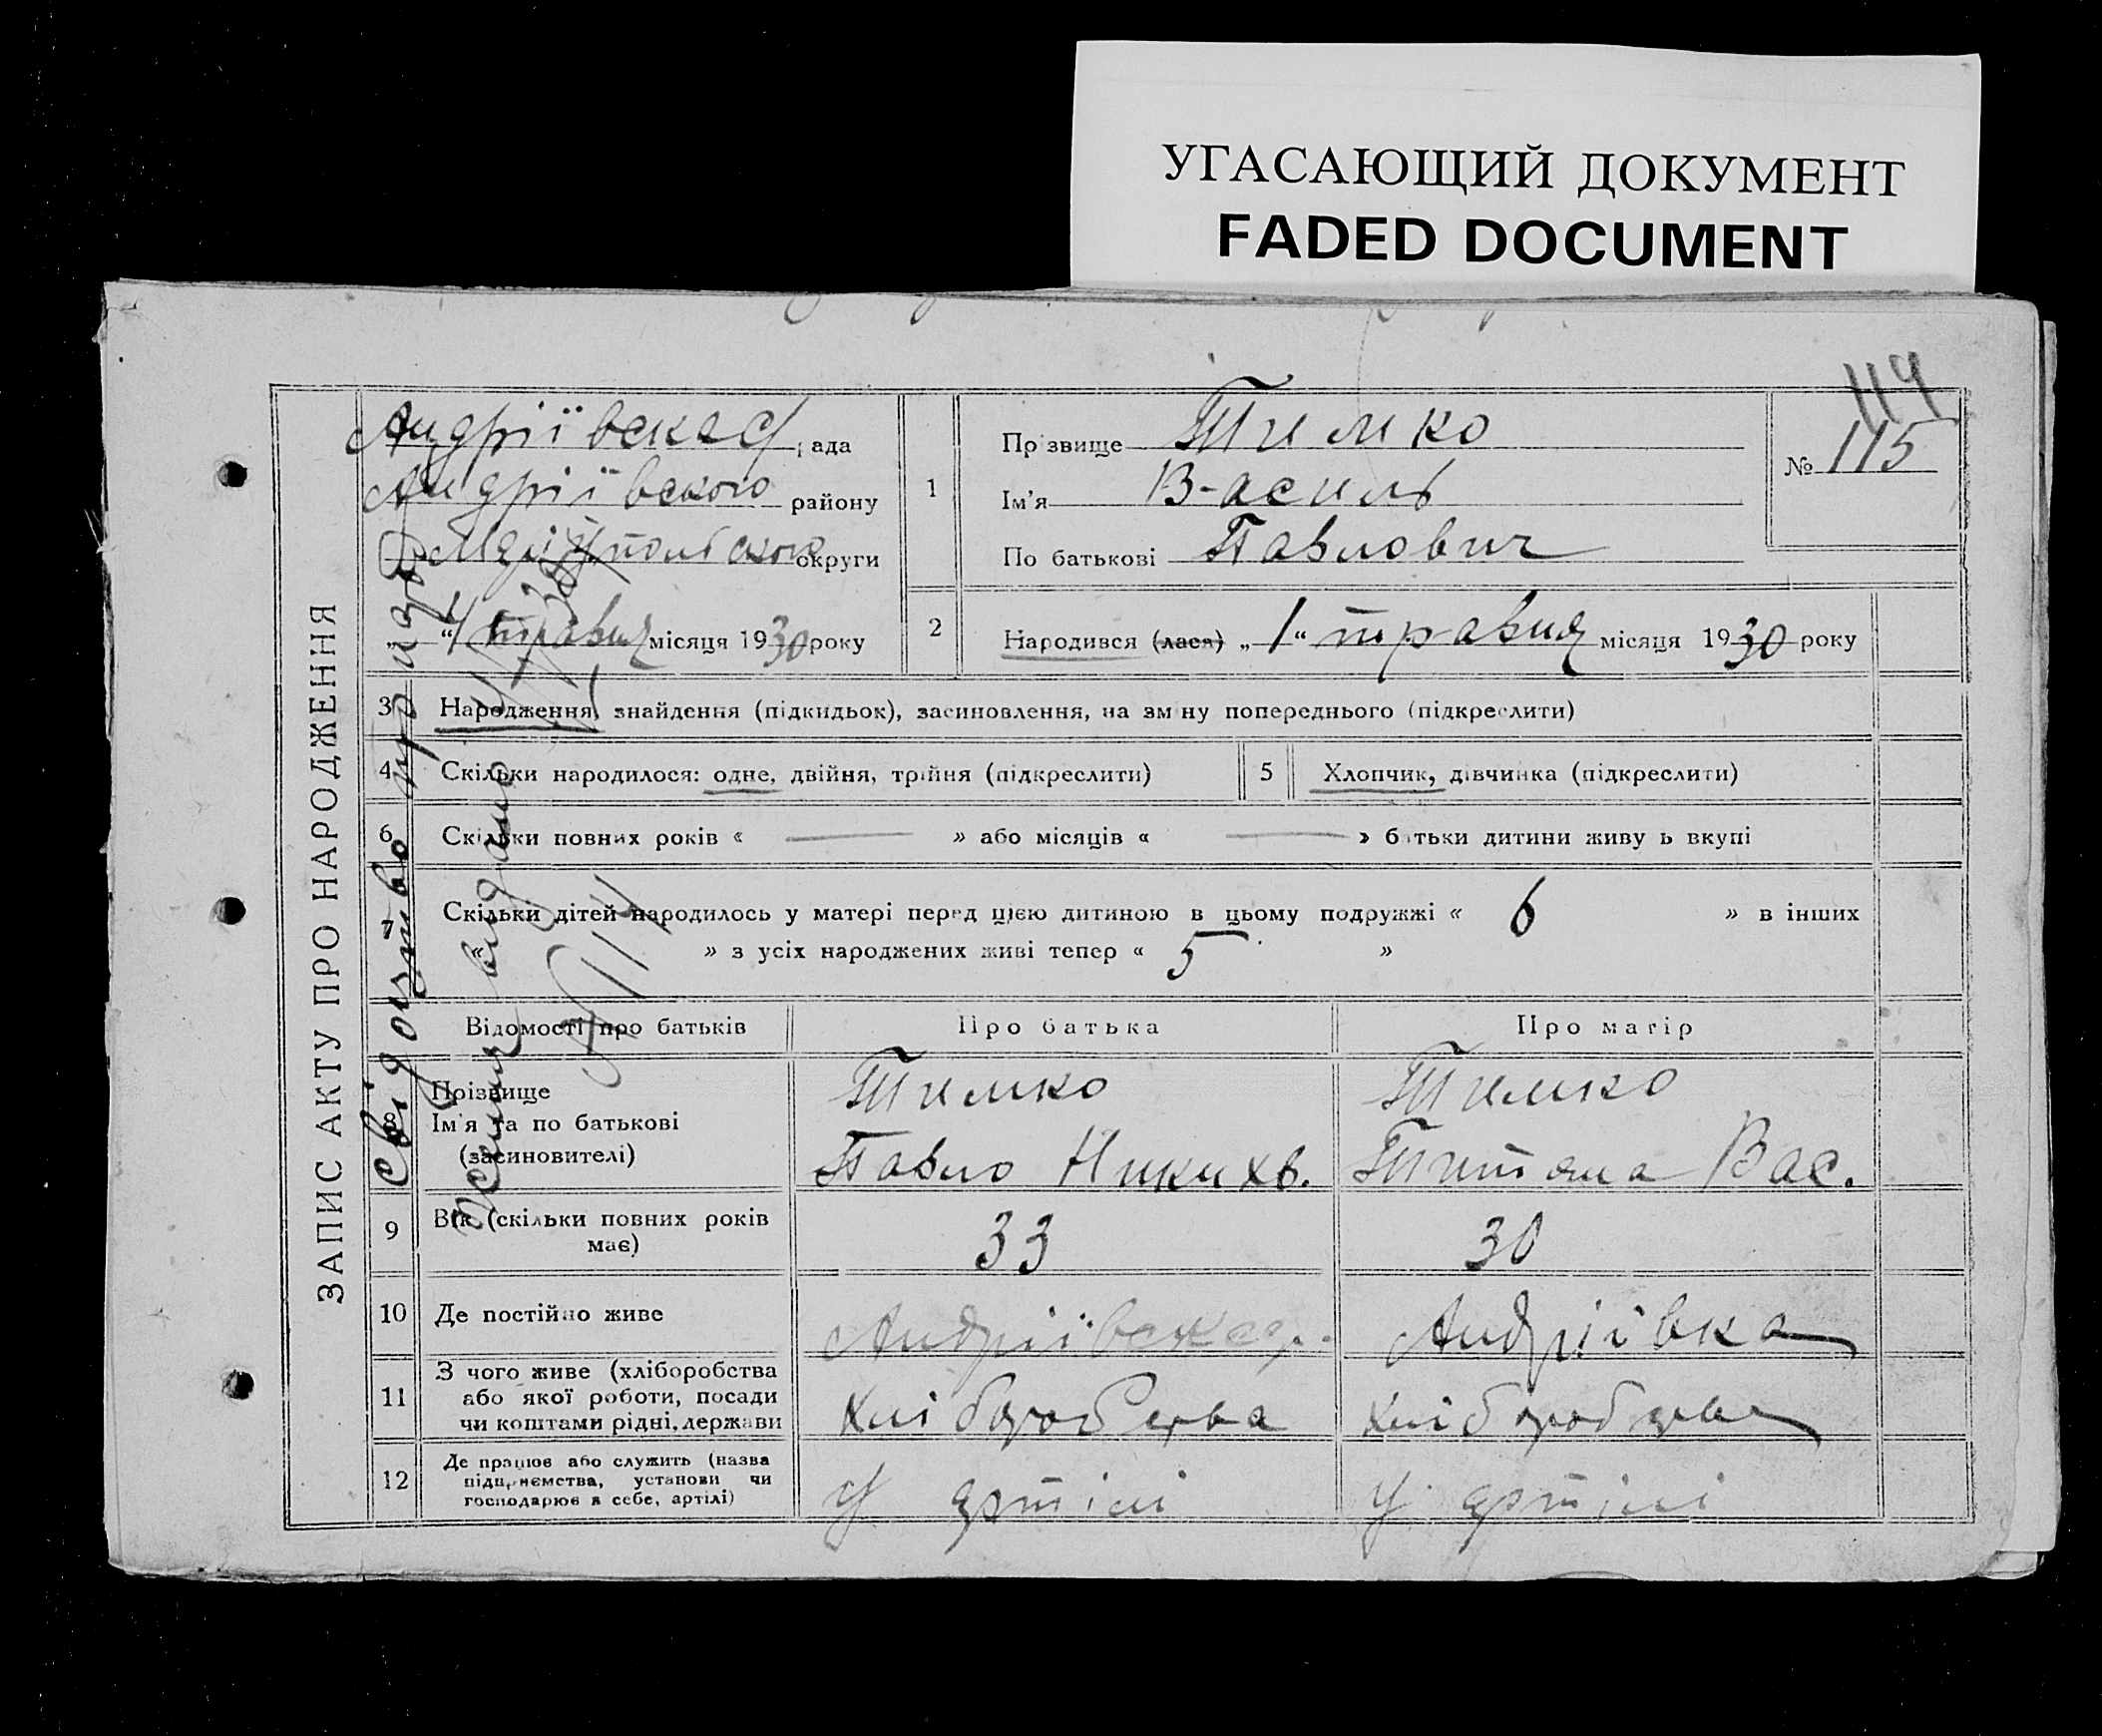 УГАСАЮЩИЙ ДОКУМЕНТ
FADED DOCUMENT
114
ЗАПИС АКТУ ПРО НАРОДЖЕННЯ
Андріївская рада
Андріївского району
Маріюпольского округи
"4" травня місяця 1930 року
1 Прізвище Тимко
Ім'я Василь
По батькові Павлович
№ 115
2 Народився (лася) „1“ травня місяця 1930 року
3 Народження, знайдення (підкидьок), засиновлення, на зміну попереднього (підкреслити)
4 Скільки народилося: одне, двійня, трійня (підкреслити)
5 Хлопчик, дівчинка (підкреслити)
6 Скільки повних років « — » або місяців « — » батьки дитини живуть вкупі
7 Скільки дітей народилось у матері перед цією дитиною в цьому подружжі « 6 » в інших
« » з усіх народжених живі тепер « 5 »
Відомості про батьків Про батька Про матір
8 Прізвище Тимко Тимко
Ім'я та по батькові
(засиновителі) Павло Никихв. Титяна Вас.
9 Вік (скільки повних років
має) 33 30
10 Де постійно живе Андріївская. Андріївка
11 З чого живе (хліборобства
або якої роботи, посади
чи коштами рідні, держави хліборобства хліборобства
12 Де працює або служить (назва
підприємства, установи чи
господарює в себе, артілі) У артілі У артілі
Свідочтво про
видано